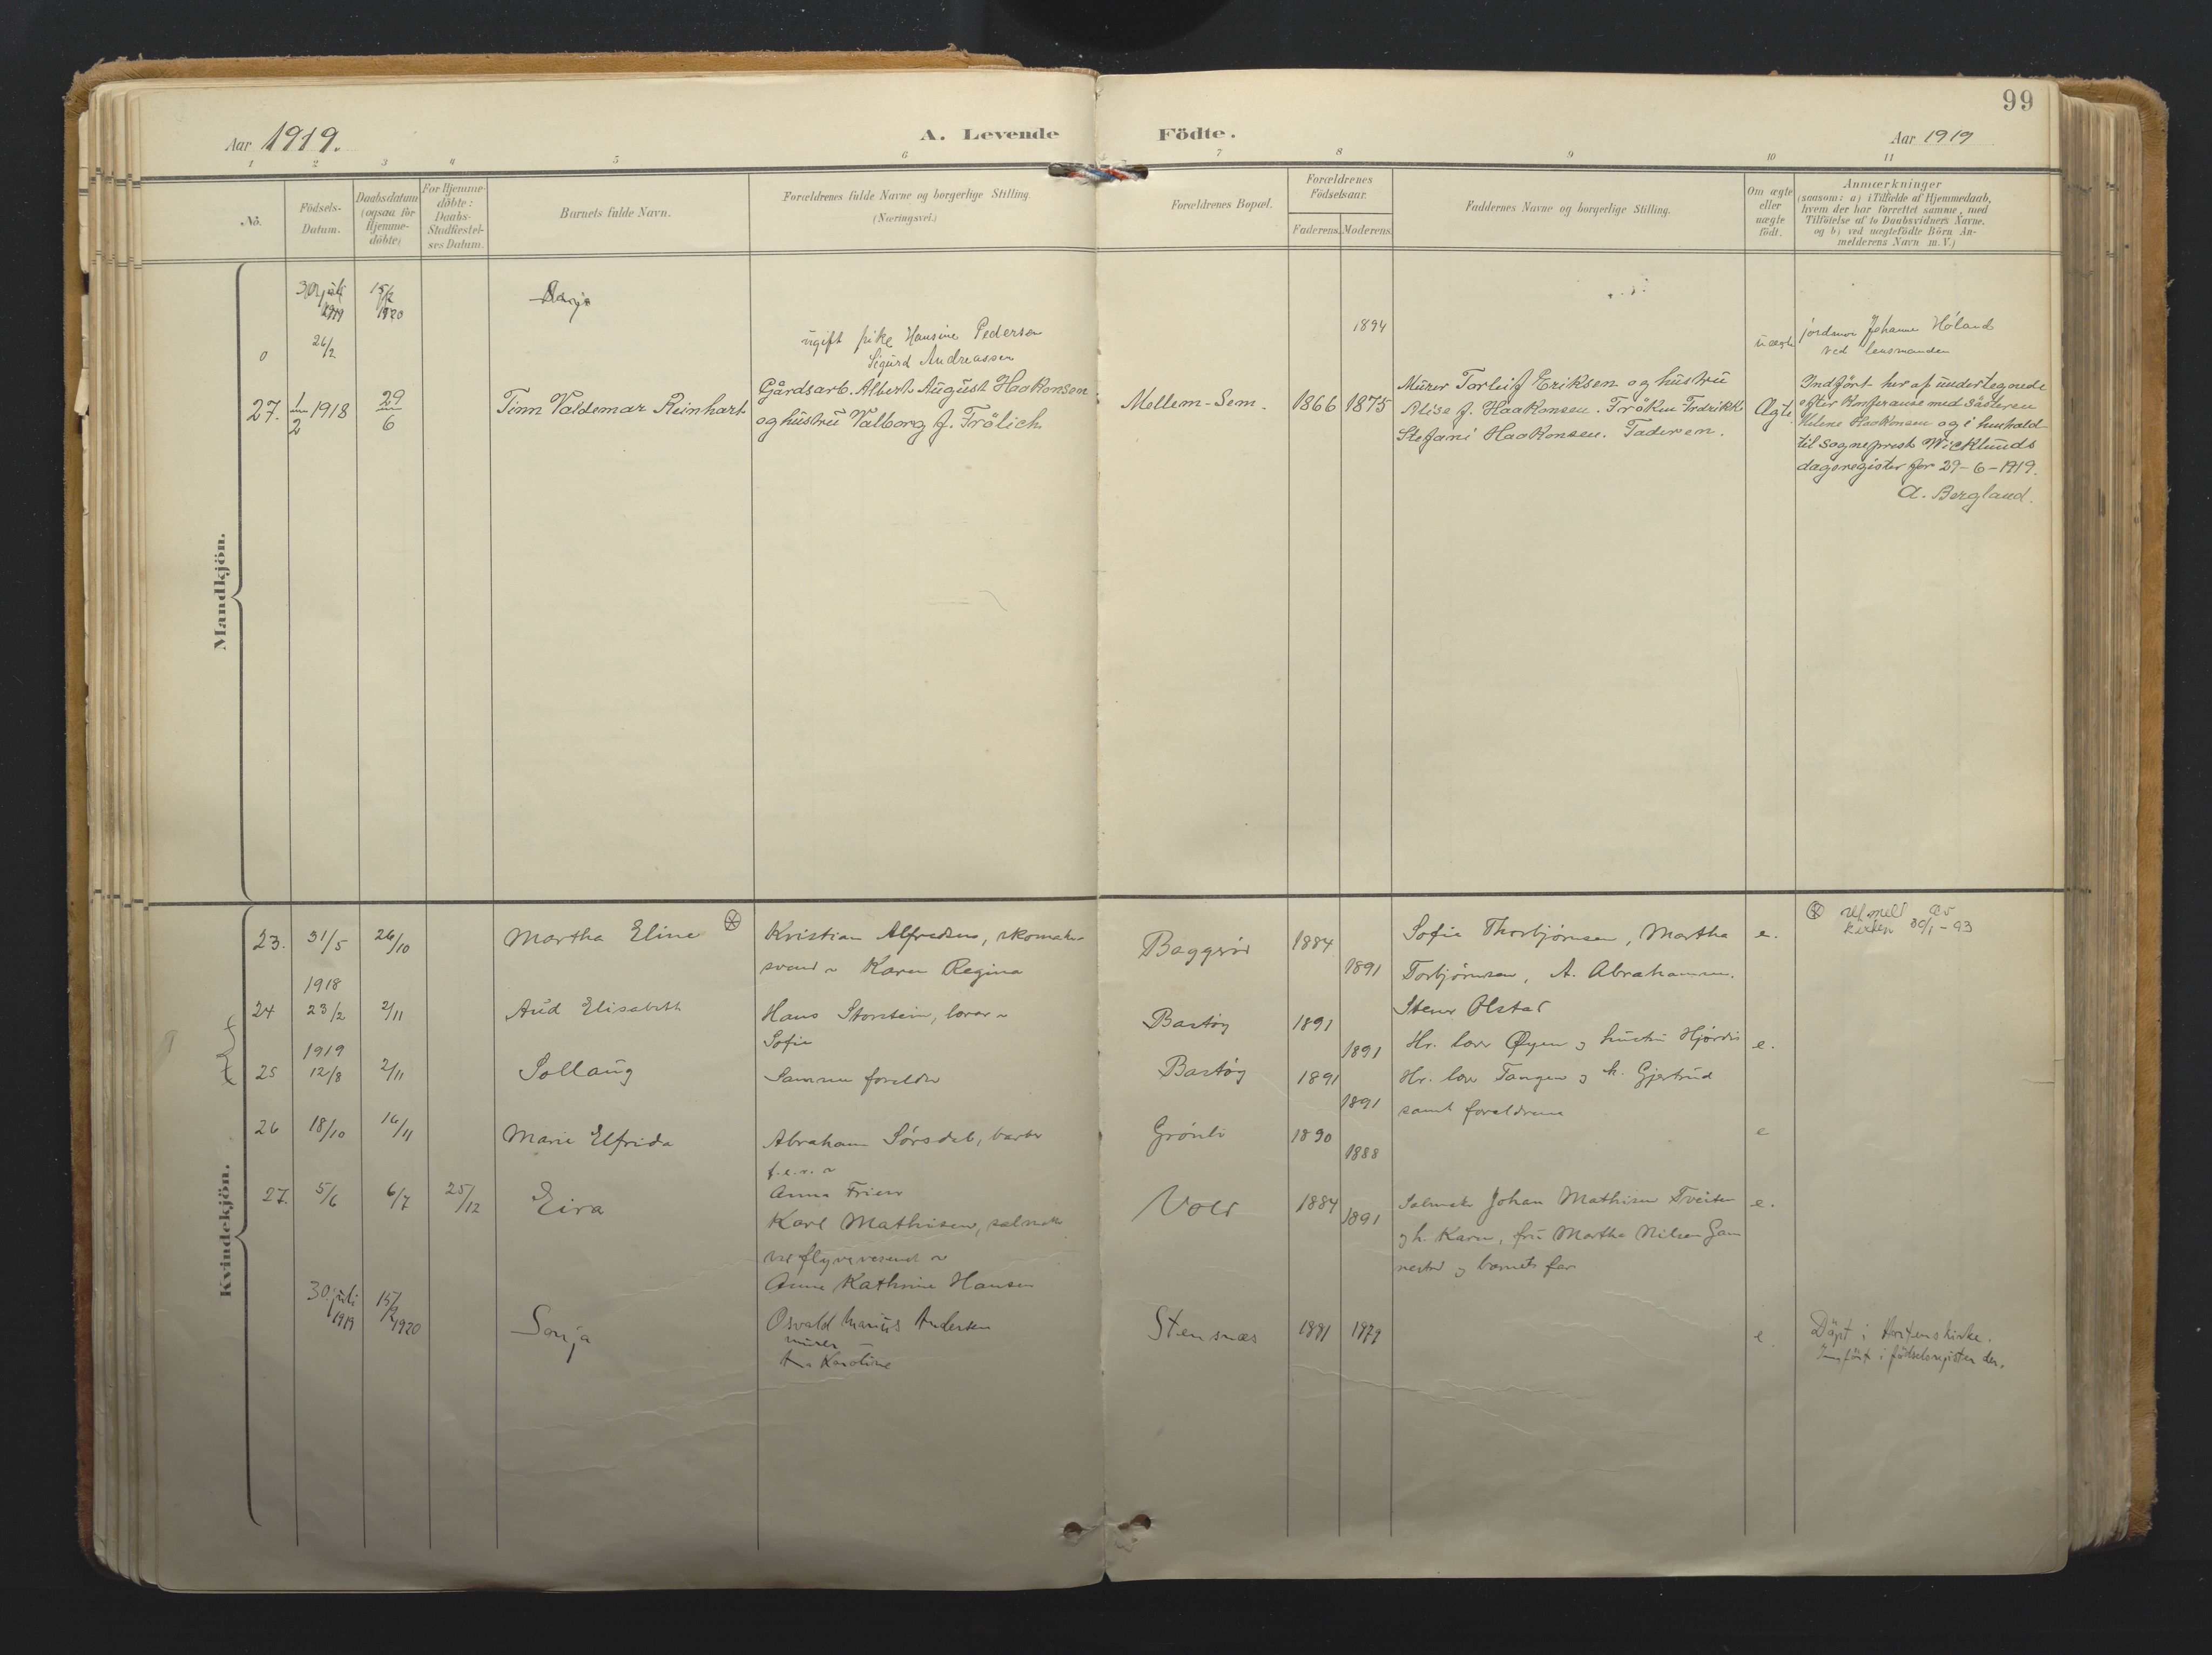 99
Aar 1919.
A. Levende Födte.
Aar 1919
1 2 3 4 5 6 7 8 9 10 11
No.
Födsels-
Datum.
Daabsdatum
(ogsaa for
Hjemme-
döbte)
For Hjemme-
döbte:
Daabs-
Stadfæstel-
ses Datum.
Barnets fulde Navn.
Forældrenes fulde Navne og borgerlige Stilling
(Næringsvei.)
Forældrenes Bopæl.
Forældrenes
Födselsaar.
Faderens. Moderens.
Faddernes Navne og borgerlige Stilling.
Om ægte
eller
uægte
födt.
Anmærkninger
(saasom: a) i Tilfælde af Hjemmedaab,
hvem der har forrettet samme, med
Tilföielse af to Daabsvidners Navne.
og b) ved uægtefödte Börn An-
melderens Navn m. V.)
Mandkjön.
30 juli 1919
15/2 1920
Sonja
0
26/2
ugift pike Hansine Pedersen
Sigurd Andreassen
1894
uægte
jordmor Johanne Høland
ved lensmanden
27.
1/2 1918
29/6
Finn Valdemar Reinhart
Gårdsarb. Albert August Haakonsen
og hustru Valborg f. Frölich
Mellem-Sem.
1866
1875
Murer Torleif Eriksen og hustru
Alise f. Haakonsen. Fröken Fredrikke
Stefani Haakonsen. Faderen.
Ægte
Indfört her af undertegnede
efter konferanse med søsteren
Helene Haakonsen og i henhold
til sogneprest Wicklunds
dagsregister for 29-6-1919.
A. Bergland.
Kvindekjön.
23.
31/5
26/10
Martha Eline
Kristian Alfredsen, skomaker-
svend ~ Karen Regina
Baggerød
1884
1891
Sofie Thorbjørnsen, Martha
Torbjørnsen, A. Abrahamsen.
e.
kirken 30/1-93
24
1918
23/2
2/11
Aud Elisabeth
Hans Storstein, lærer ~
Sofie
Bastøy
1891
1891
Stener Ølstad
Hr. lærer Øyen og hustru Hjørdis
e.
25
1919
12/8
2/11
Sollaug
Samme foreldre
Bastøy
1891
1891
Hr. lærer Tangen og h. Gjertrud
samt foreldrene
26
18/10
16/11
Marie Elfrida
Abraham Sørsdal,
f.e.v. ~
Anna
Grönli
1890
1888
e
27.
5/6
6/7
25/12
Eira
Karl Mathisen, salmak.
ved flyvevesenet ~
Anne Kathrine Hansen
Vold
1884
1891
Salmak. Johan Mathisen Tveiten
og h. Karen, fru Martha Nilsen Gan
nestad og barnets far
e.
30 juli
1919
15/2 1920
Sonja
Osvald Marius Andersen
murer
Karoline
Stensnæs
1881
1879
e
Däpt i Hortens kirke.
Innfört i födselsregister der.